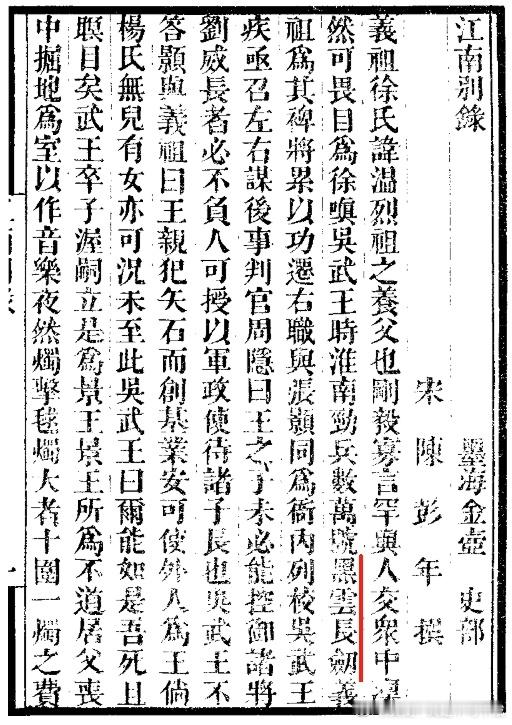 江南別錄 墨海金壺 史部
宋 陳 彭 年 撰
義祖徐氏諱温烈祖之養父也剛毅寡言罕與人交衆中凜
然可畏目爲徐嗔吳武王時淮南勁兵數萬號黑雲長劔義
祖爲其裨將累以功遷右職與張顥同爲衙內列校吳武王
疾亟召左右謀後事判官周隱曰王之子未必能控御諸將
劉威長者必不負人可授以軍政使待諸子長也吳武王不
答顥與義祖曰王親犯矢石而創基業安可使外人爲王倘
楊氏無兒有女亦可況未至此吳武王曰爾能如是吾死且
瞑目矣武王卒子渥嗣立是爲景王景王所爲不道居父喪
中掘地爲室以作音樂夜然燭擊毬燭大者十圍一燭之費